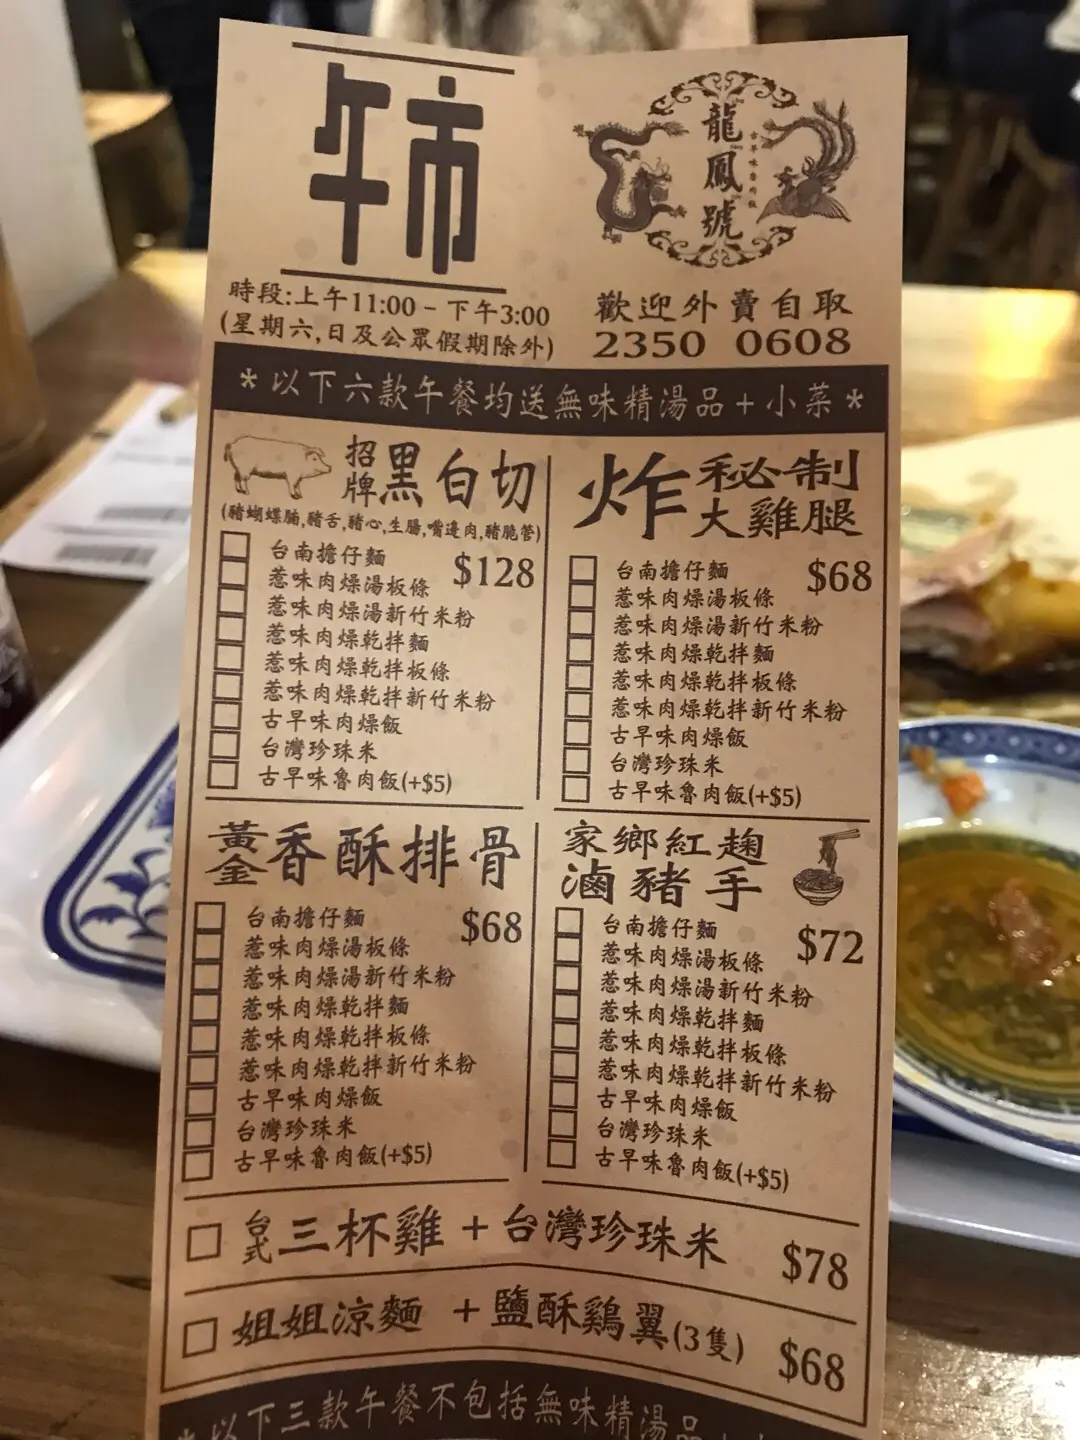 午市
龍鳳號
古早味魯肉飯
時段:上午11:00 - 下午3:00
(星期六,日及公眾假期除外)
歡迎外賣自取
2350 0608
*以下六款午餐均送無味精湯品+小菜*
招牌黑白切
(豬蝴蝶腩,豬舌,豬心,生腸,嘴邊肉,豬脆管)
$128
台南擔仔麵
惹味肉燥湯板條
惹味肉燥湯新竹米粉
惹味肉燥乾拌麵
惹味肉燥乾拌板條
惹味肉燥乾拌新竹米粉
古早味肉燥飯
台灣珍珠米
古早味魯肉飯(+$5)
炸秘制大雞腿
$68
台南擔仔麵
惹味肉燥湯板條
惹味肉燥湯新竹米粉
惹味肉燥乾拌麵
惹味肉燥乾拌板條
惹味肉燥乾拌新竹米粉
古早味肉燥飯
台灣珍珠米
古早味魯肉飯(+$5)
黃金香酥排骨
$68
台南擔仔麵
惹味肉燥湯板條
惹味肉燥湯新竹米粉
惹味肉燥乾拌麵
惹味肉燥乾拌板條
惹味肉燥乾拌新竹米粉
古早味肉燥飯
台灣珍珠米
古早味魯肉飯(+$5)
家鄉紅麴
滷豬手
$72
台南擔仔麵
惹味肉燥湯板條
惹味肉燥湯新竹米粉
惹味肉燥乾拌麵
惹味肉燥乾拌板條
惹味肉燥乾拌新竹米粉
古早味肉燥飯
台灣珍珠米
古早味魯肉飯(+$5)
台式三杯雞+台灣珍珠米 $78
姐姐涼麵 +鹽酥鷄翼(3隻) $68
*以下三款午餐不包括無味精湯品